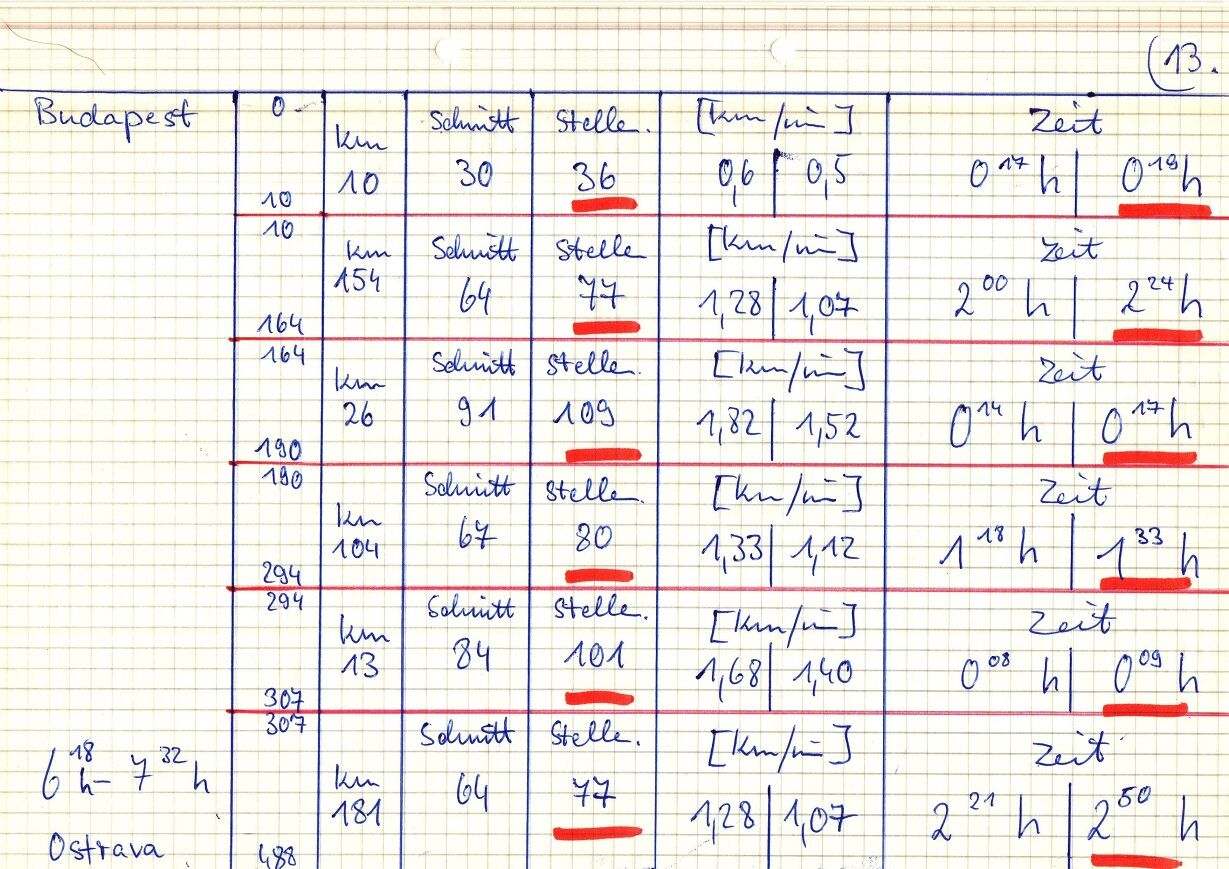 (13.
Budapest 0 Schnitt Stelle. [km/min] Zeit
km
10 30 36 0,6 | 0,5 0 17 h | 0 19 h
10
10 km Schnitt Stelle [km/min] Zeit
154 64 77 1,28 | 1,07 2 00 h | 2 24 h
164
164 Schnitt Stelle. [km/min] Zeit
km
26 91 109 1,82 | 1,52 0 14 h | 0 17 h
190
190 Schnitt Stelle. [km/min] Zeit
km
104 67 80 1,33 | 1,12 1 18 h | 1 33 h
294
294 Schnitt Stelle. [km/min] Zeit
km
13 84 101 1,68 | 1,40 0 08 h | 0 09 h
307
307 Schnitt Stelle. [km/min] Zeit
6 18 h – 7 32 h km
181 64 77 1,28 | 1,07 2 21 h | 2 50 h
Ostrava 488